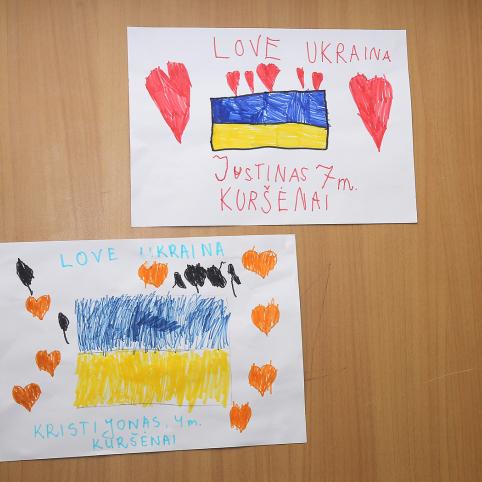 LOVE UKRAINA
JUSTINAS 7m.
KURŠĖNAI
LOVE UKRAINA
KRISTIJONAS, 4m.
KURŠĖNAI